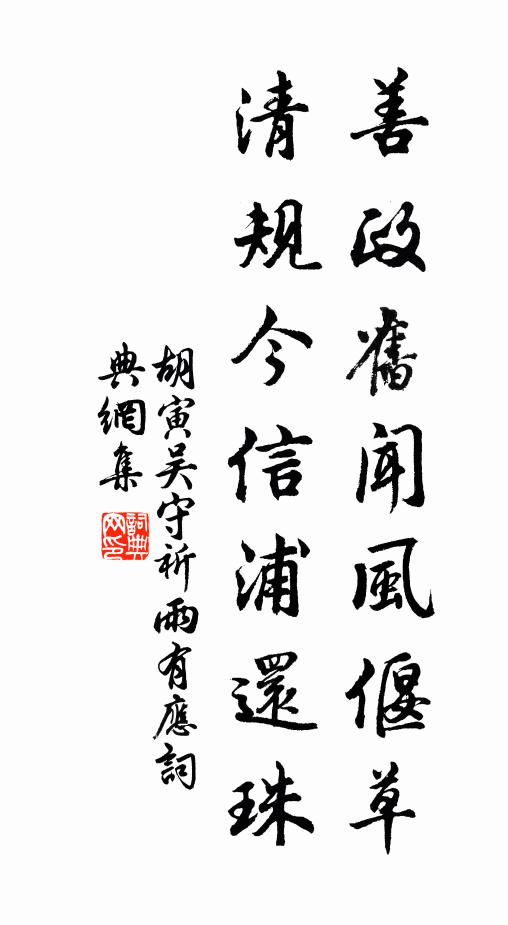 善政舊聞風偃草
清規今信浦還珠
胡寅吴守祈雨有應詞
典網集
詞典網印